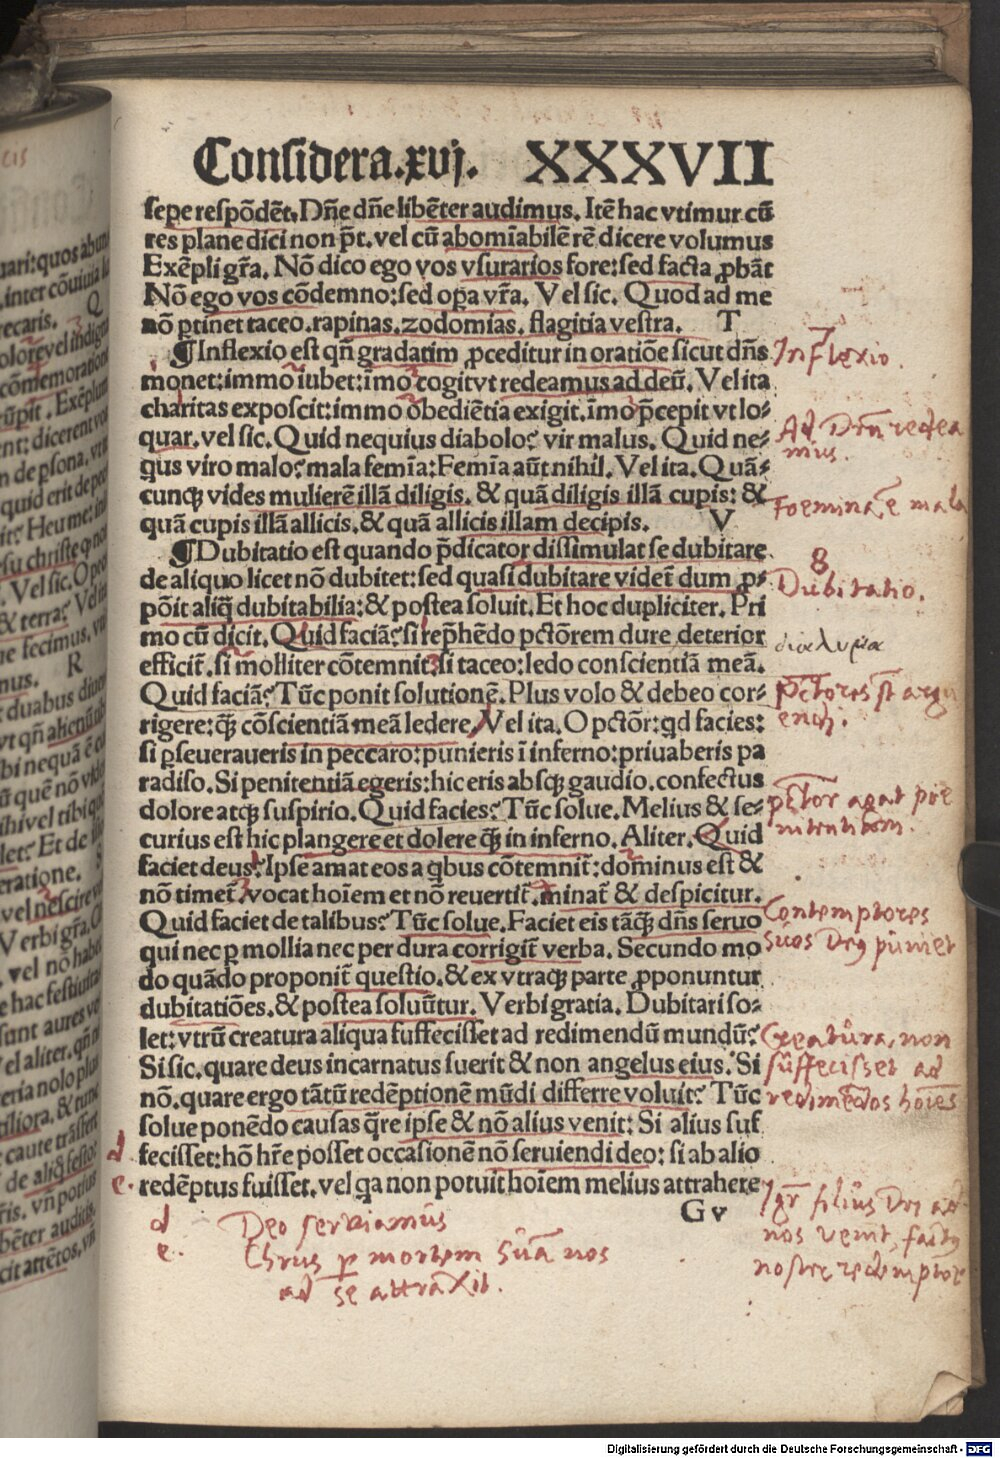 Considera.xvj. XXXVII
sepe respõdẽt. Dñe dñe libẽter audimus. Itẽ hac vtimur cũ
res plane dici non p̃t. vel cũ abomĩabilẽ rẽ dicere volumus
Exẽpli gr̃a. Nõ dico ego vos vsurarios fore: sed facta ꝓbãt
Nõ ego vos cõdemno: sed oꝑa vr̃a. Vel sic. Quod ad me
nõ ꝑtinet taceo. rapinas. zodomias. flagitia vestra. T
¶Inflexio est qñ gradatim ꝓceditur in oratiõe sicut dñs
monet: immo iubet: ĩmo cogit vt redeamus ad deũ. Vel ita
charitas exposcit: immo obediẽtia exigit. ĩmo p̃cepit vt lo⸗
quar. vel sic. Quid nequius diabolo? vir malus. Quid ne⸗
qus viro malo? mala femĩa: Femĩa aũt nihil. Vel ita. Quã⸗
cunqꝫ vides mulierẽ illã diligis. & quã diligis illã cupis: &
quã cupis illã allicis. & quã allicis illam decipis. V
¶Dubitatio est quando p̃dicator dissimulat se dubitare
de aliquo licet nõ dubitet: sed quasi dubitare videt̃ dum ꝓ⸗
põit aliq̃ dubitabilia: & postea soluit. Et hoc dupliciter. Pri
mo cũ dicit. Quid faciã? si rep̃hẽdo pctõrem dure deterior
efficit̃. si molliter cõtemnit̃ si taceo: ledo conscientiã meã.
Quid faciã? Tũc ponit solutionẽ. Plus volo & debeo cor⸗
rigere: qꝫ̃ cõscientiã meã ledere. Vel ita. O pctõr: qd facies:
si ꝑseueraueris in peccato: punieris ĩ inferno: priuaberis pa
radiso. Si penitentiã egeris: hic eris absqꝫ gaudio. confectus
dolore atqꝫ suspirio. Quid facies? Tũc solue. Melius & se⸗
curius est hic plangere et dolere qꝫ̃ in inferno. Aliter. Quid
faciet deus? Ipse amat eos a qbus cõtemnit̃: dominus est &
nõ timet̃ vocat hoĩem et nõ reuertit̃. minat̃ & despicitur.
Quid faciet de talibus? Tũc solue. Faciet eis tãqꝫ̃ dñs seruo
qui nec ꝑ mollia nec per dura corrigit̃ verba. Secundo mo
do quãdo proponit̃ questio. & ex vtraqꝫ parte ꝓponuntur
dubitatiões. & postea soluũtur. Verbi gratia. Dubitari so⸗
let: vtrũ creatura aliqua suffecisset ad redimendũ mundũ?
Si sic. quare deus incarnatus fuerit & non angelus eius. Si
nõ. quare ergo tãtũ redẽptionẽ mũdi differre voluit? Tũc
solue ponẽdo causas q̃re ipse & nõ alius venit: Si alius suf
fecisset: hõ hr̃e posset occasionẽ nõ seruiendi deo: si ab alio
redẽptus fuisset. vel qa non potuit hoĩem melius attrahere
G v
Inflexio.
Ad Dñm redea
mus.
Foemina ẽ mala
8
Dubitatio.
διαλυσια
Pctores st̃ argu
endi.
pctor agat poe
nitentiam.
Contemptores
suos Dns puniet
Creatura, non
suffecisset ad
redimẽdos hoies
Igr̃ filius Dei ad
nos venit, factus
nostre redemptor
d
e.
d Deo serviamus
e. Chrus ꝑ mortem suã nos
ad se attraxit.
Digitalisierung gefördert durch die Deutsche Forschungsgemeinschaft - DFG